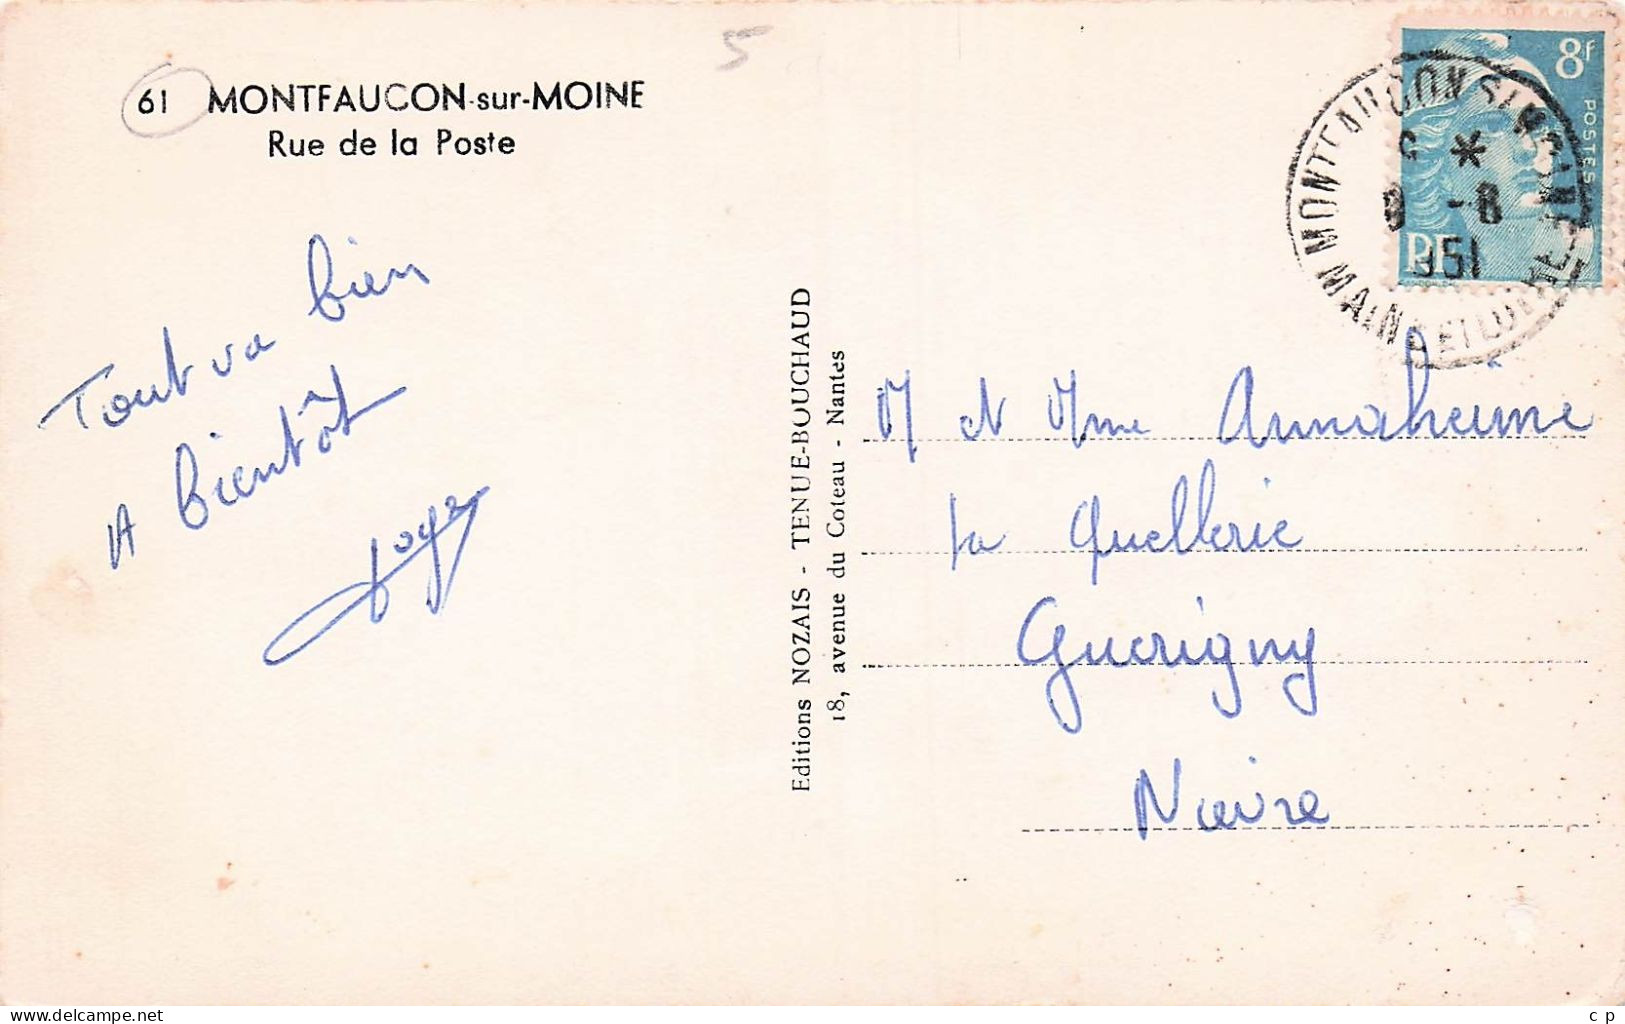 5
61 MONTFAUCON-sur-MOINE
Rue de la Poste
Tout va bien
A bientôt
Editions NOZAIS - TENUE-BOUCHAUD
18, avenue du Coteau - Nantes
8f
POSTES
RF
MONTFAUCON S/ MOINE
MAINE ET LOIRE
9 -8
951
M et Mme
la Quellerie
Guerigny
Nièvre
www.delcampe.net
c p